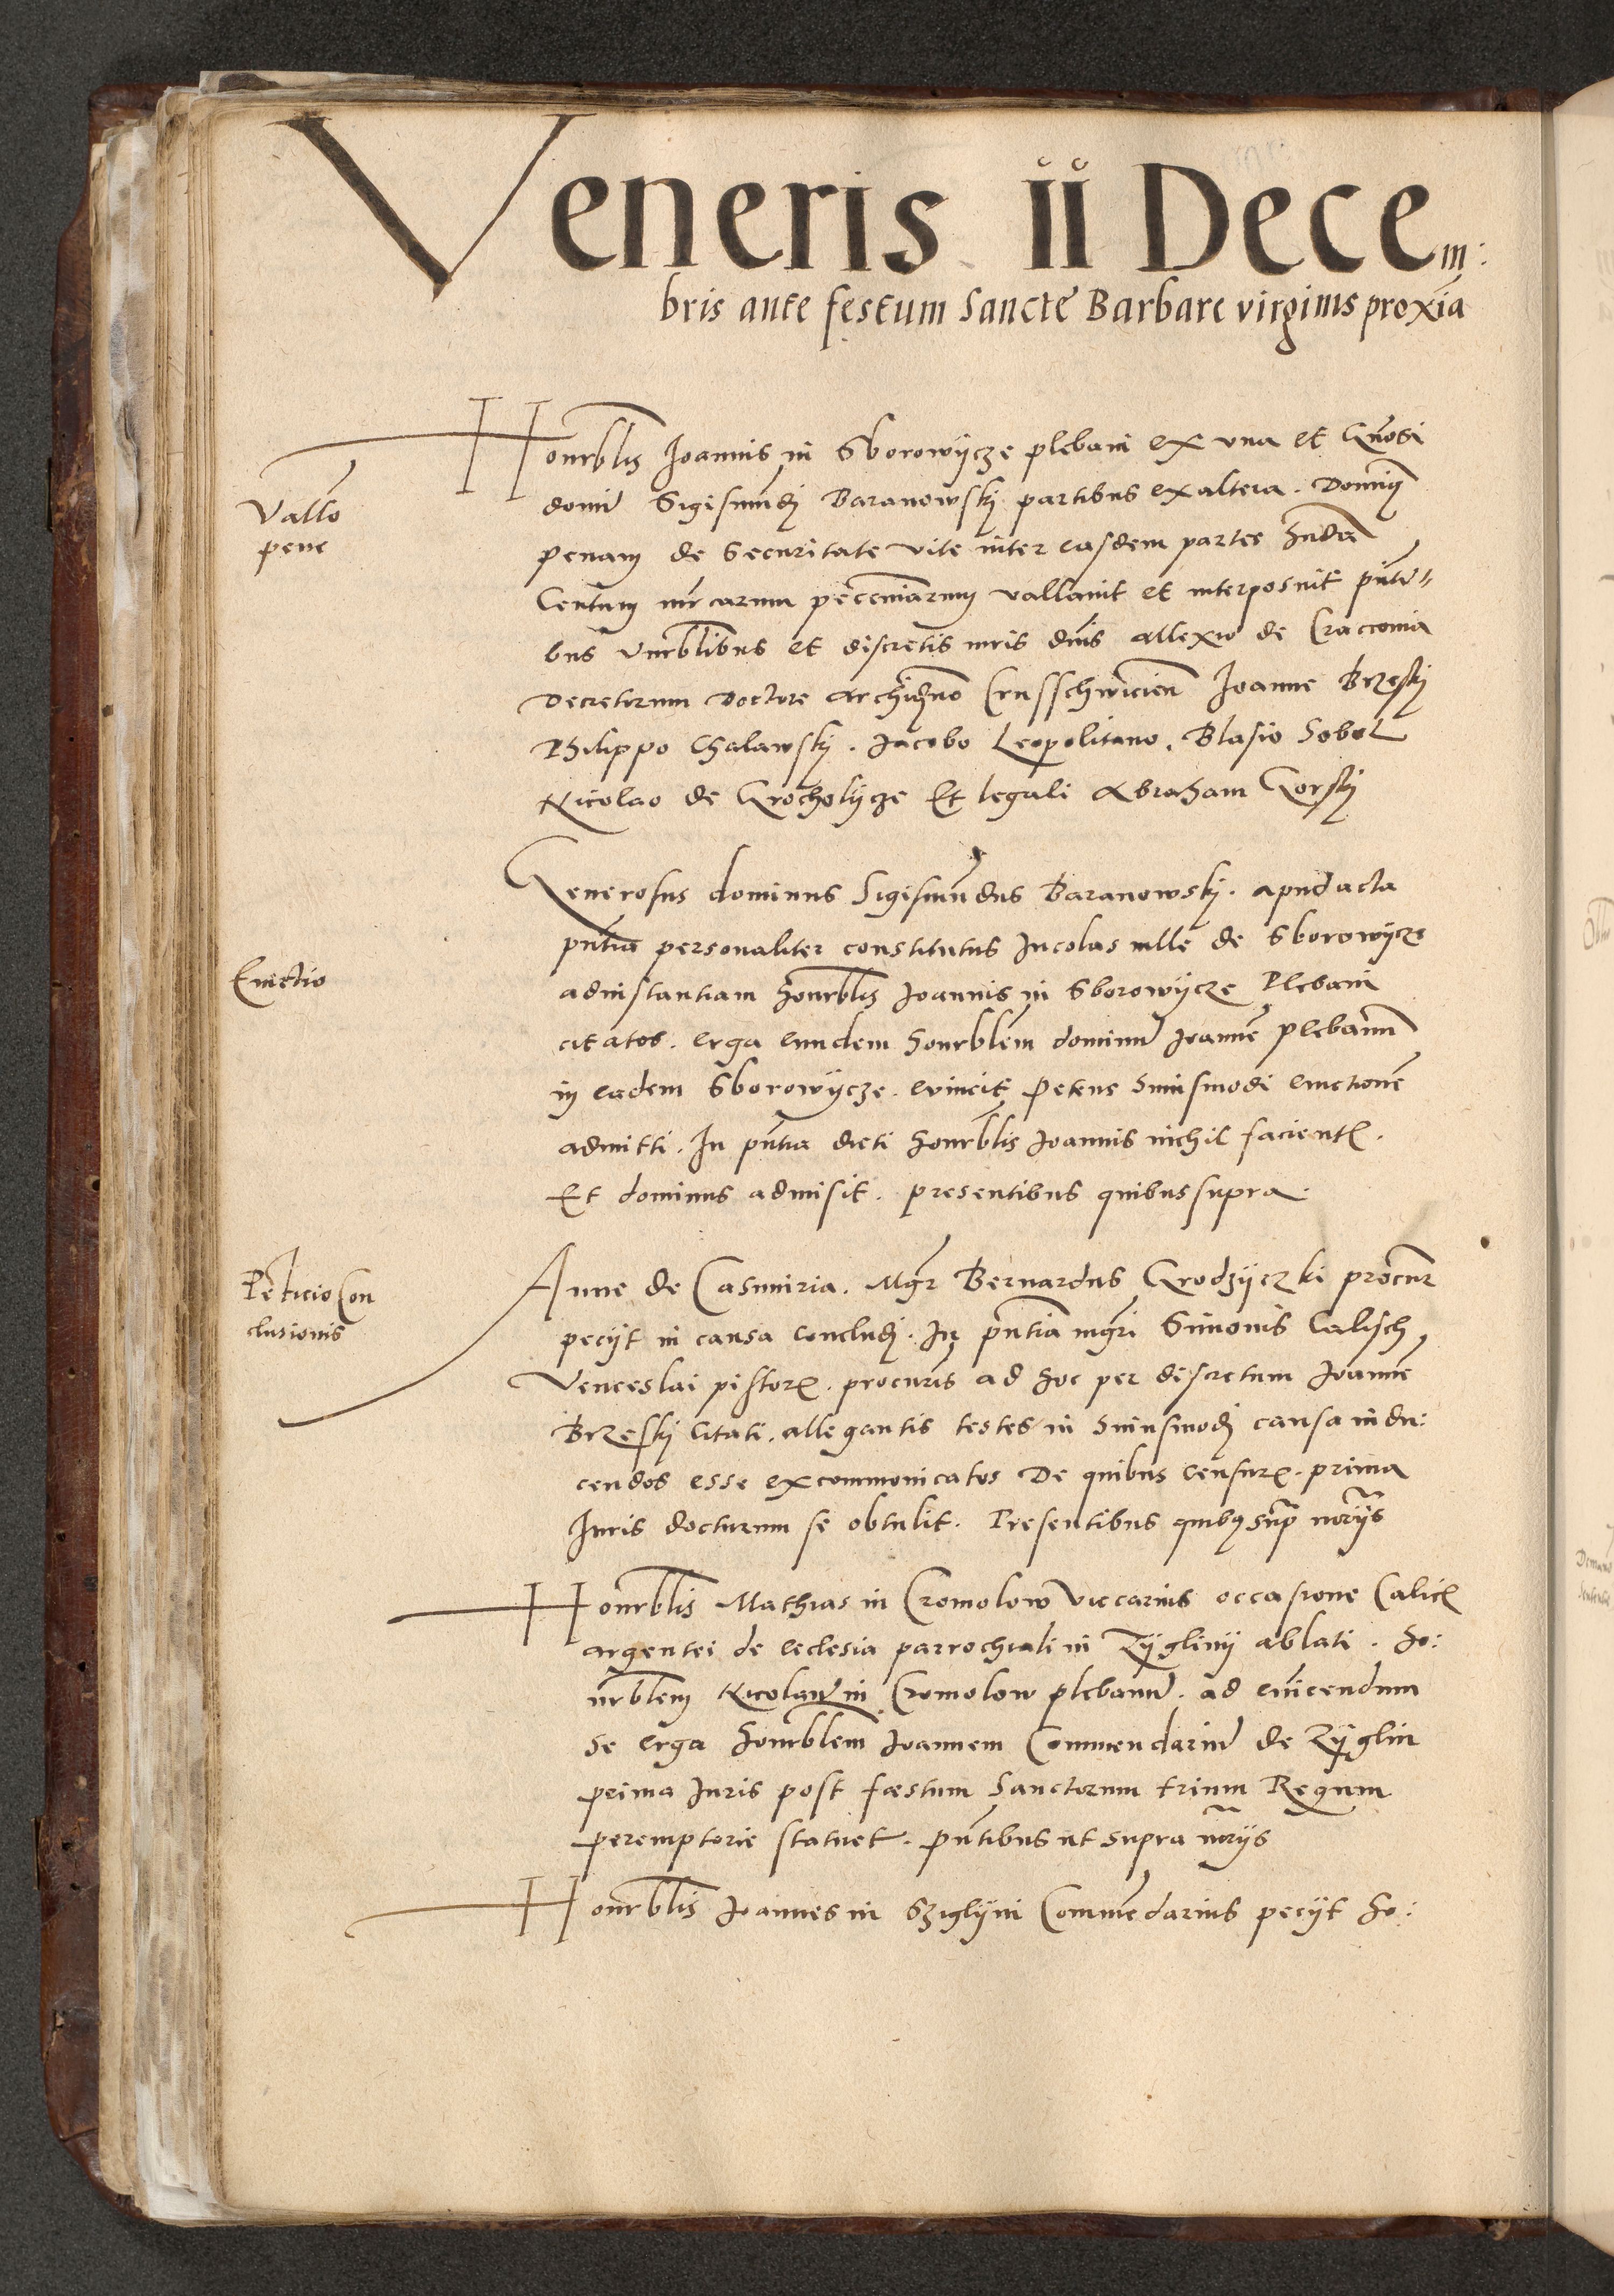 Veneris ii Decem:
bris ante festum Sancte Barbare virginis proxia
Honrblis Joannis in Sborowycze plebani ex vna et Gnosi
domi Sigismundi Baranowsky partibus ex altera. Dominus
Vallo
pene
penam de securitate vite inter easdem partes
Centum mrcarum peccuniarum vallauit et interposuit pnti=
bus vnrblibus et discretis viris dnis Allexio de Craccouia
Decretorum Doctore Archidyno Joanne Brzesky
Philippo Chalawsky. Jacobo Leopolitano, Blasio Sobol
Nicolao de Grocholycze Et legali Abraham Gorsky
Generosus dominus Sigismundus Baranowsky. apud acta
pntia personaliter constitutus Incolas ville de Sborowycze
Euictio
ad instantiam honrblis Joannis in Sborowycze Plebani
citatos. erga eundem honrblem dominu Joanne plebanu
in eadem Sborowycze. euincit petens huiusmodi euictione
admitti. In pntia dicti honrblis Joannis nichil facient.
Et dominus admisit. presentibus quibus supra.
Peticio Con
clusionis
Anne de Casimiria. Mgr Bernardus Grodzyczki procur
pecyt in causa concludi. In pntia mgri Simonis Calisch
Venceslai pistor. procuris ad hoc per discretum Joanne
Brzesky citati. allegantis testes in huiusmodi causa indu:
cendos esse excommonicatos De quibus censur. prima
Juris docturum se obtulit. Presentibus quibus supra noryis
Honrblis Mathias in Cromolow viccarius occasione Calic
argentei de ecclesia parrochiali in Zygliny ablati. ho:
nrblem Nicolaum in Cromolow plebanu. ad euincendum
se erga honrblem Joannem Commendariu de Zyglin
prima Juris post fæstum Sanctorum trium Regum
peremptorie statuet. pntibus ut supra noryis
Honrblis Joannes in Sziglyni Commedarius pecyt ho: